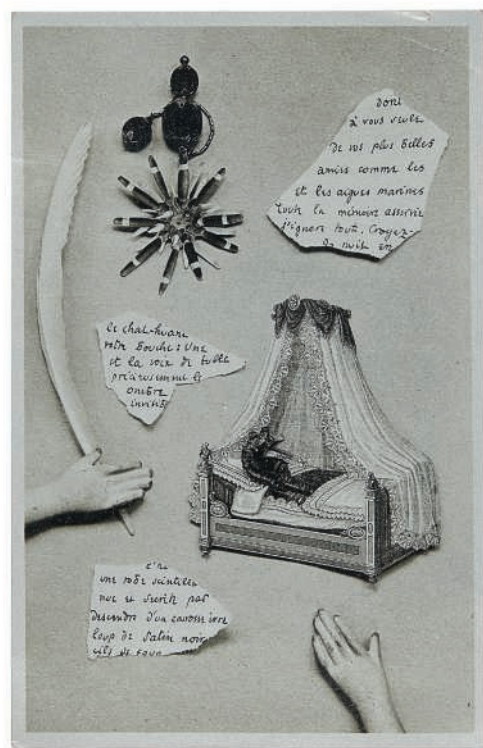 dont
à vous seule
De vos plus belles
amies comme les
et les aigues marines
toute la mémoire asservie
J'ignore tout. Croyez-
la nuit en
le chat-huant
votre bouche : Une
et la voix de tulle
précieusement le
ombre
invisib
une robe scintillan
nue se
descendre d'un carrosse ivre
loup de satin noir
cils de